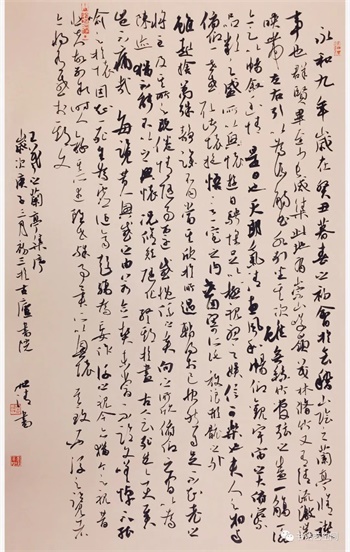 永和九年歲在癸丑暮春之初會於會稽山陰之蘭亭脩禊
事也群賢畢至少長咸集此地有崇山峻領茂林脩竹又有清流激湍
映帶左右引以為流觴曲水列坐其次雖無絲竹管弦之盛一觴一詠
亦足以暢敘幽情是日也天朗氣清惠風和暢仰觀宇宙之大俯察
品類之盛所以遊目騁懷足以極視聽之娛信可樂也夫人之相與
俯仰一世或取諸懷抱悟言一室之內或因寄所託放浪形骸之外
雖趣舍萬殊靜躁不同當其欣於所遇暫得於己快然自足不知老之
將至及其所之既倦情隨事遷感慨係之矣向之所欣俛仰之間以為
陳迹猶不能不以之興懷況脩短隨化終期於盡古人云死生亦大矣
豈不痛哉每覽昔人興感之由若合一契未嘗不臨文嗟悼不能
喻之於懷固知一死生為虛誕齊彭殤為妄作後之視今亦猶今之視昔
悲夫故列敘時人錄其所述雖世殊事異所以興懷其致一也後之覽者
亦將有感於斯文
王羲之蘭亭集序
歲次庚子三月初三於古廬書院 書